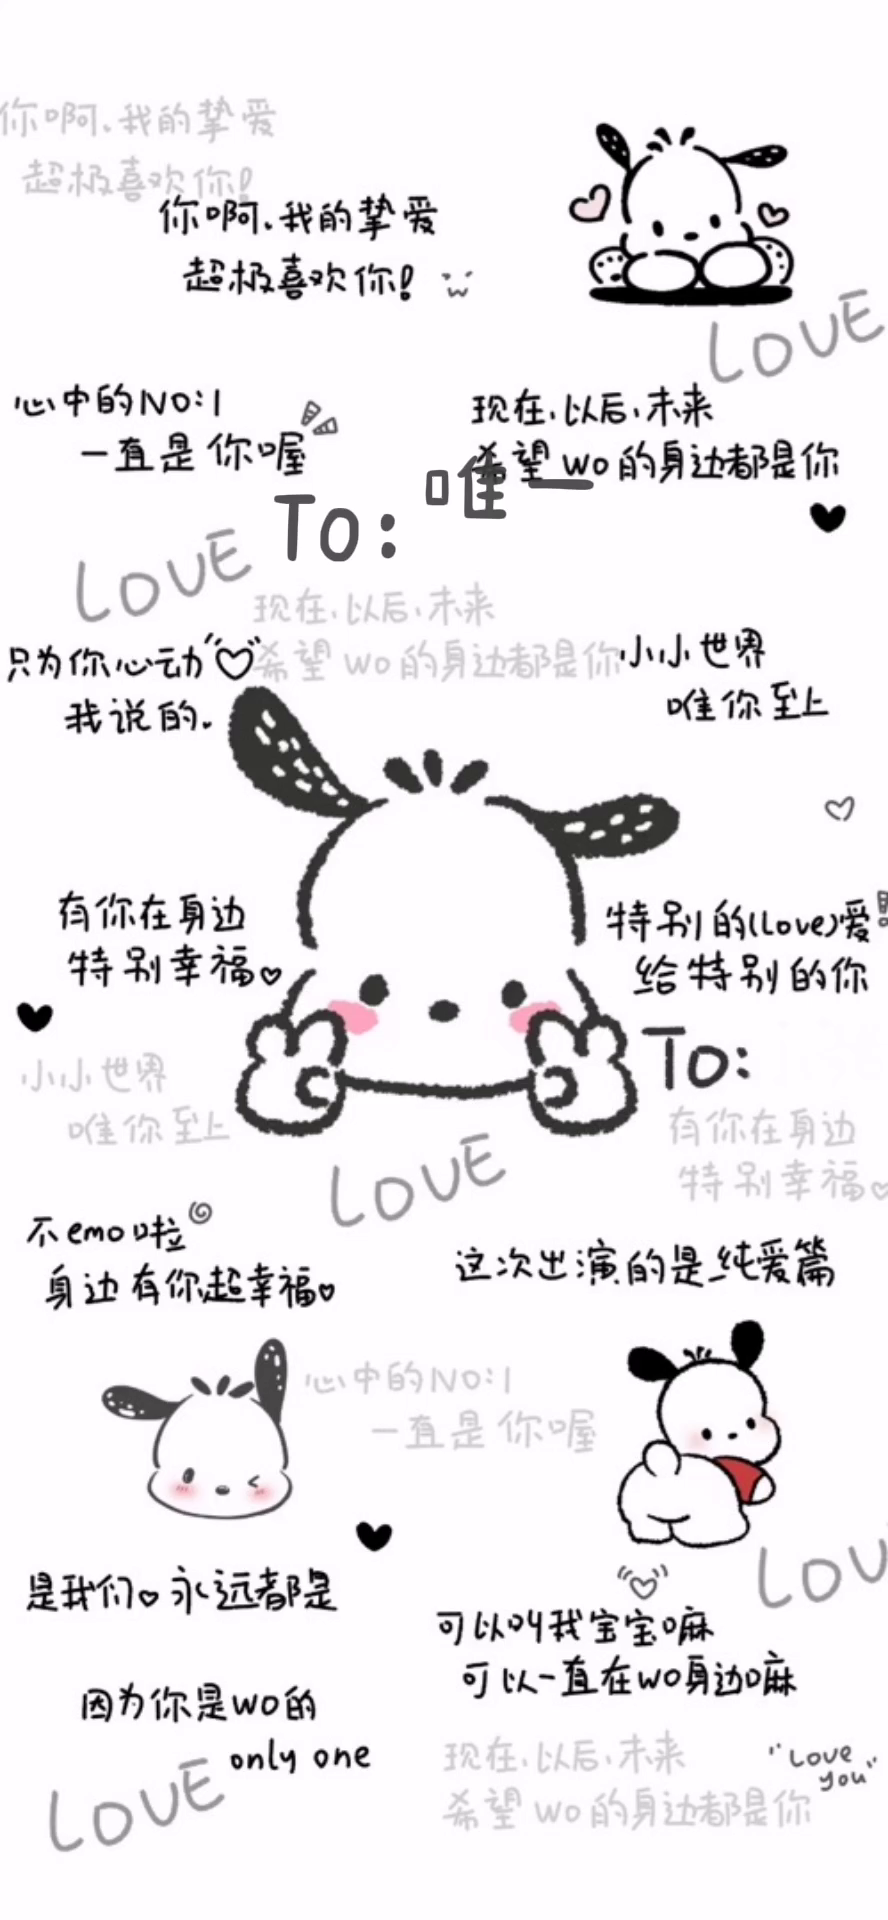 你啊、我的挚爱
超极喜欢你!
你啊、我的挚爱
超极喜欢你!
LOVE
心中的NO:1
一直是你喔
现在、以后、未来
希望wo的身边都是你
To:唯一
LOVE
现在、以后、未来
希望wo的身边都是你
只为你心动
我说的.
小小世界
唯你至上
有你在身边
特别幸福
特别的(love)爱
给特别的你
To:
小小世界
唯你至上
有你在身边
特别幸福
LOVE
不emo啦
身边有你超幸福
这次出演的是纯爱篇
心中的NO:1
一直是你喔
LOV
是我们 永远都是
可以叫我宝宝嘛
可以一直在wo身边嘛
因为你是wo的
only one
现在、以后、未来
希望wo的身边都是你
"Love
you"
LOVE